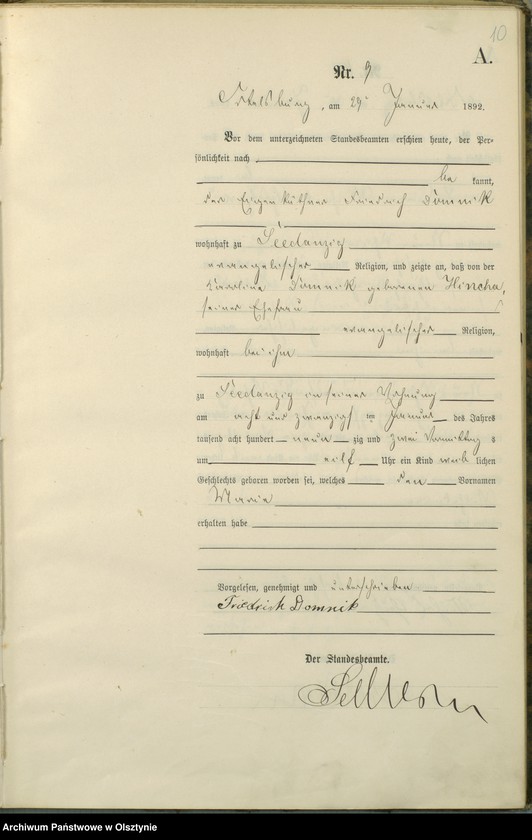 10
A.
Nr. 9
Ortelsburg, am 29 Januar 1892.
Vor dem unterzeichneten Standesbeamten erschien heute, der Per-
sönlichkeit nach
be kannt,
der Eigenkäthner Friedrich Domnik
wohnhaft zu Seedanzig
evangelischer Religion, und zeigte an, daß von der
Karoline Domnik geborenen Hincha,
seiner Ehefrau
evangelischer Religion,
wohnhaft bei ihm
zu Seedanzig in seiner Wohnung
am acht und zwanzigs ten Januar des Jahres
tausend acht hundert neun zig und zwei Vormittag s
um eilf Uhr ein Kind weib lichen
Geschlechts geboren worden sei, welches den Vornamen
Marie
erhalten habe
Vorgelesen, genehmigt und unterschrieben
Friedrich Domnik
Der Standesbeamte.
Archiwum Państwowe w Olsztynie